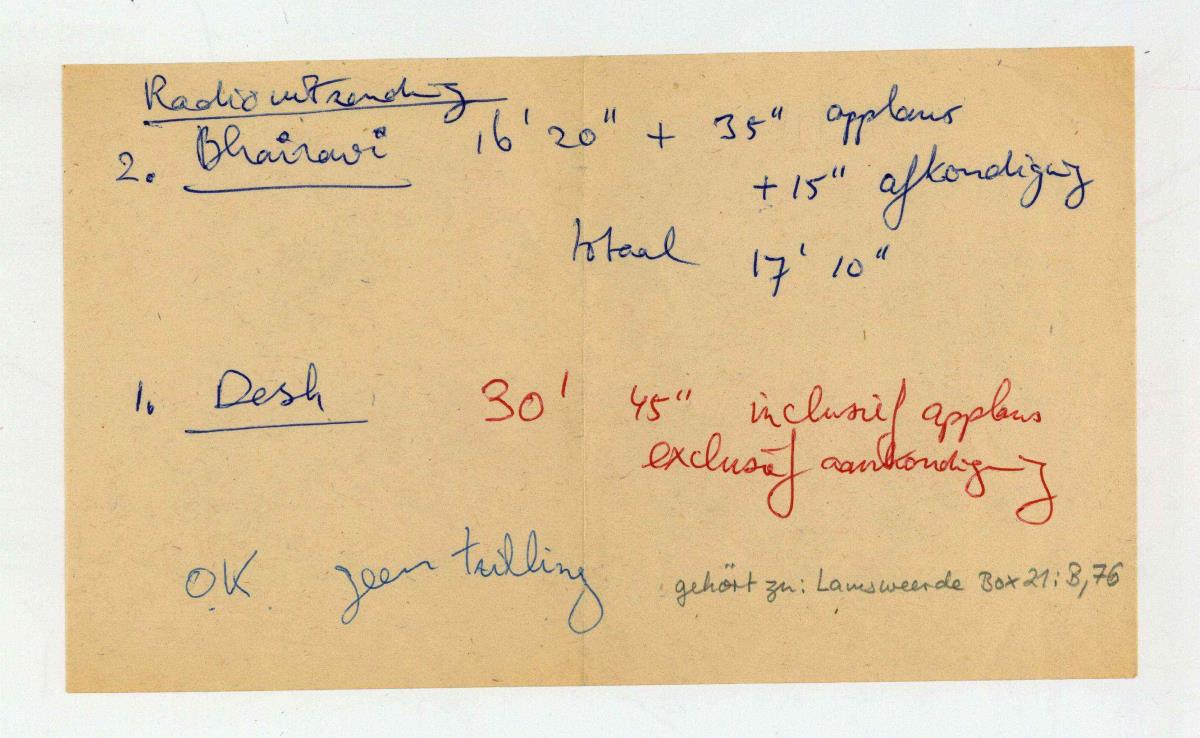 Radiouitzending
2. Bhairavi 16' 20" + 35" applaus
+ 15" afkondiging
totaal 17' 10"
1. Desh 30' 45" inclusief applaus
exclusief aankondiging
OK geen trilling
gehört zu: Lamsweerde Box 21: B, 76